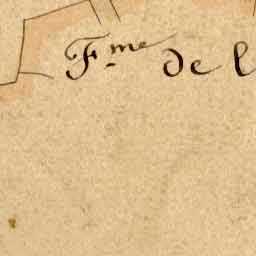 Fme de l